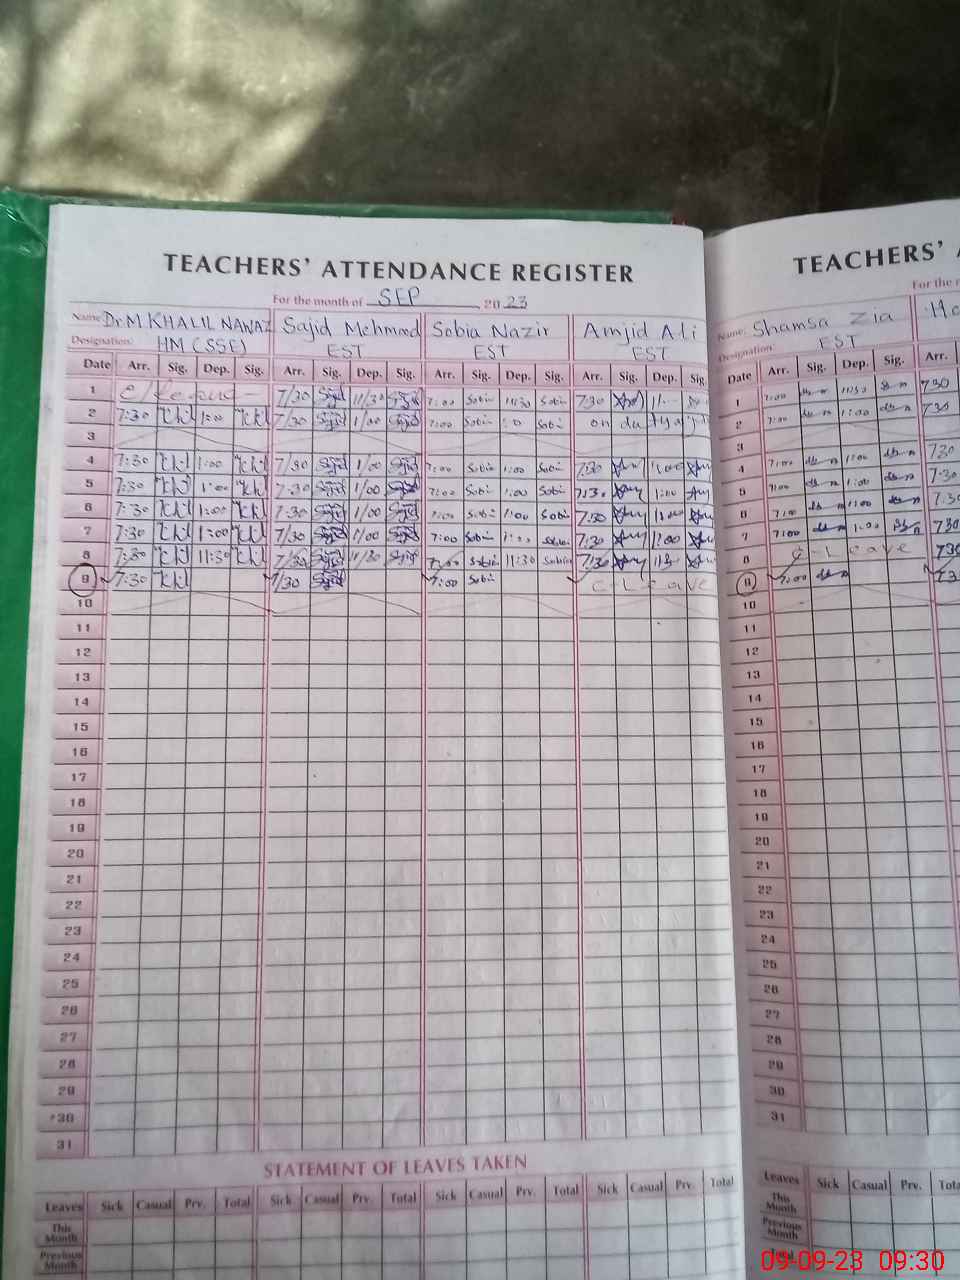 TEACHERS' ATTENDANCE REGISTER
For the month of SEP 2023
Name: Dr M KHALIL NAWAZ Sajid Mehmood Sobia Nazir Amjid Ali
Designation: HM (SSE) EST EST EST
Date Arr. Sig. Dep. Sig. Arr. Sig. Dep. Sig. Arr. Sig. Dep. Sig. Arr. Sig. Dep. Sig.
1 7/30 11/30 7:00 Sobia 11:30 Sobia 7:30
2 7:30 1:00 7/30 1/00 7:00 Sobia Sobia on duty
3
4 7:30 1:00 7/30 1/00 7:00 Sobia 1:00 Sobia 7:30 1:00
5 7:30 1:00 7:30 1/00 7:00 Sobia 1:00 Sobia 7:30 1:00
6 7:30 1:00 7:30 1/00 7:00 Sobia 1:00 Sobia 7:30 1:00
7 7:30 1:00 7/30 1/00 7:00 Sobia 1:00 Sobia 7:30 1:00
8 7:30 11:30 7/30 11/30 7:00 Sobia 11:30 Sobia 7:30
9 7:30 7/30 7:00 Sobia C-Leave
10
11
12
13
14
15
16
17
18
19
20
21
22
23
24
25
26
27
28
29
30
31
STATEMENT OF LEAVES TAKEN
Leaves Sick Casual Prv. Total Sick Casual Prv. Total Sick Casual Prv. Total Sick Casual Prv. Total
This Month
Previous Month
TEACHERS'
For the
Name: Shamsa Zia
Designation: EST
Date Arr. Sig. Dep. Sig. Arr.
1 7:00 11:30 7:30
2 7:00 1:00 7:30
3
4 7:00 1:00 7:30
5 7:00 1:00 7:30
6 7:00 1:00 7:30
7 7:00 1:00 7:30
8 C-Leave 7:30
9 7:00
10
11
12
13
14
15
16
17
18
19
20
21
22
23
24
25
26
27
28
29
30
31
Leaves Sick Casual Prv. Total
This Month
Previous Month
Total
09-09-23 09:30